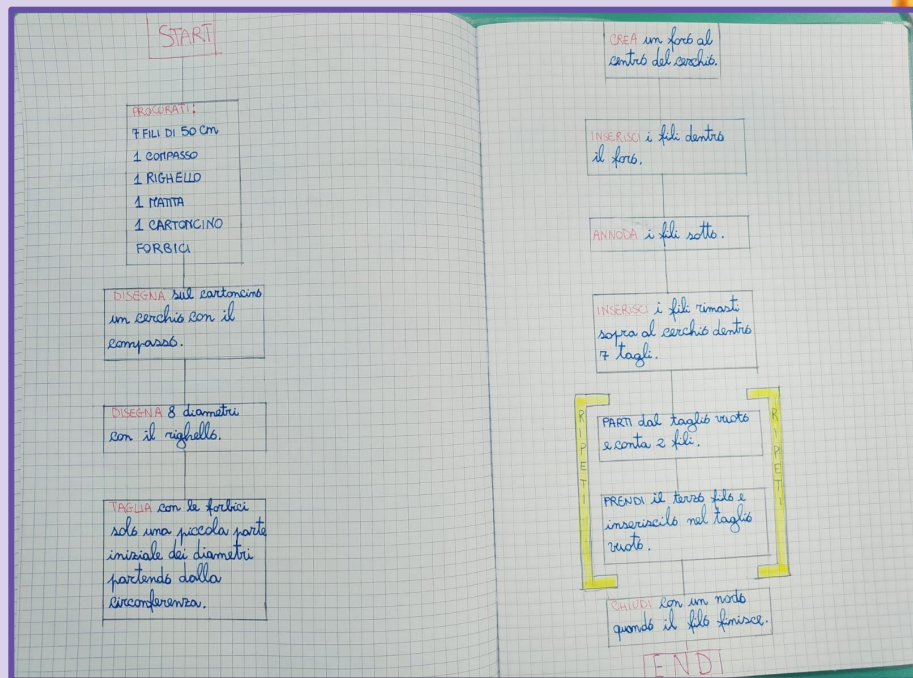 START
PROCURATI:
7 FILI DI 50 Cm
1 COMPASSO
1 RIGHELLO
1 MATITA
1 CARTONCINO
FORBICI
DISEGNA sul cartoncino
un cerchio con il
compasso.
DISEGNA 8 diametri
con il righello.
TAGLIA con le forbici
solo una piccola parte
iniziale dei diametri
partendo dalla
circonferenza.
CREA un foro al
centro del cerchio.
INSERISCI i fili dentro
il foro.
ANNODA i fili sotto.
INSERISCI i fili rimasti
sopra al cerchio dentro
7 tagli.
RIPETI
PARTI dal taglio vuoto
e conta 2 fili.
PRENDI il terzo filo e
inseriscilo nel taglio
vuoto.
RIPETI
CHIUDI con un nodo
quando il filo finisce.
END